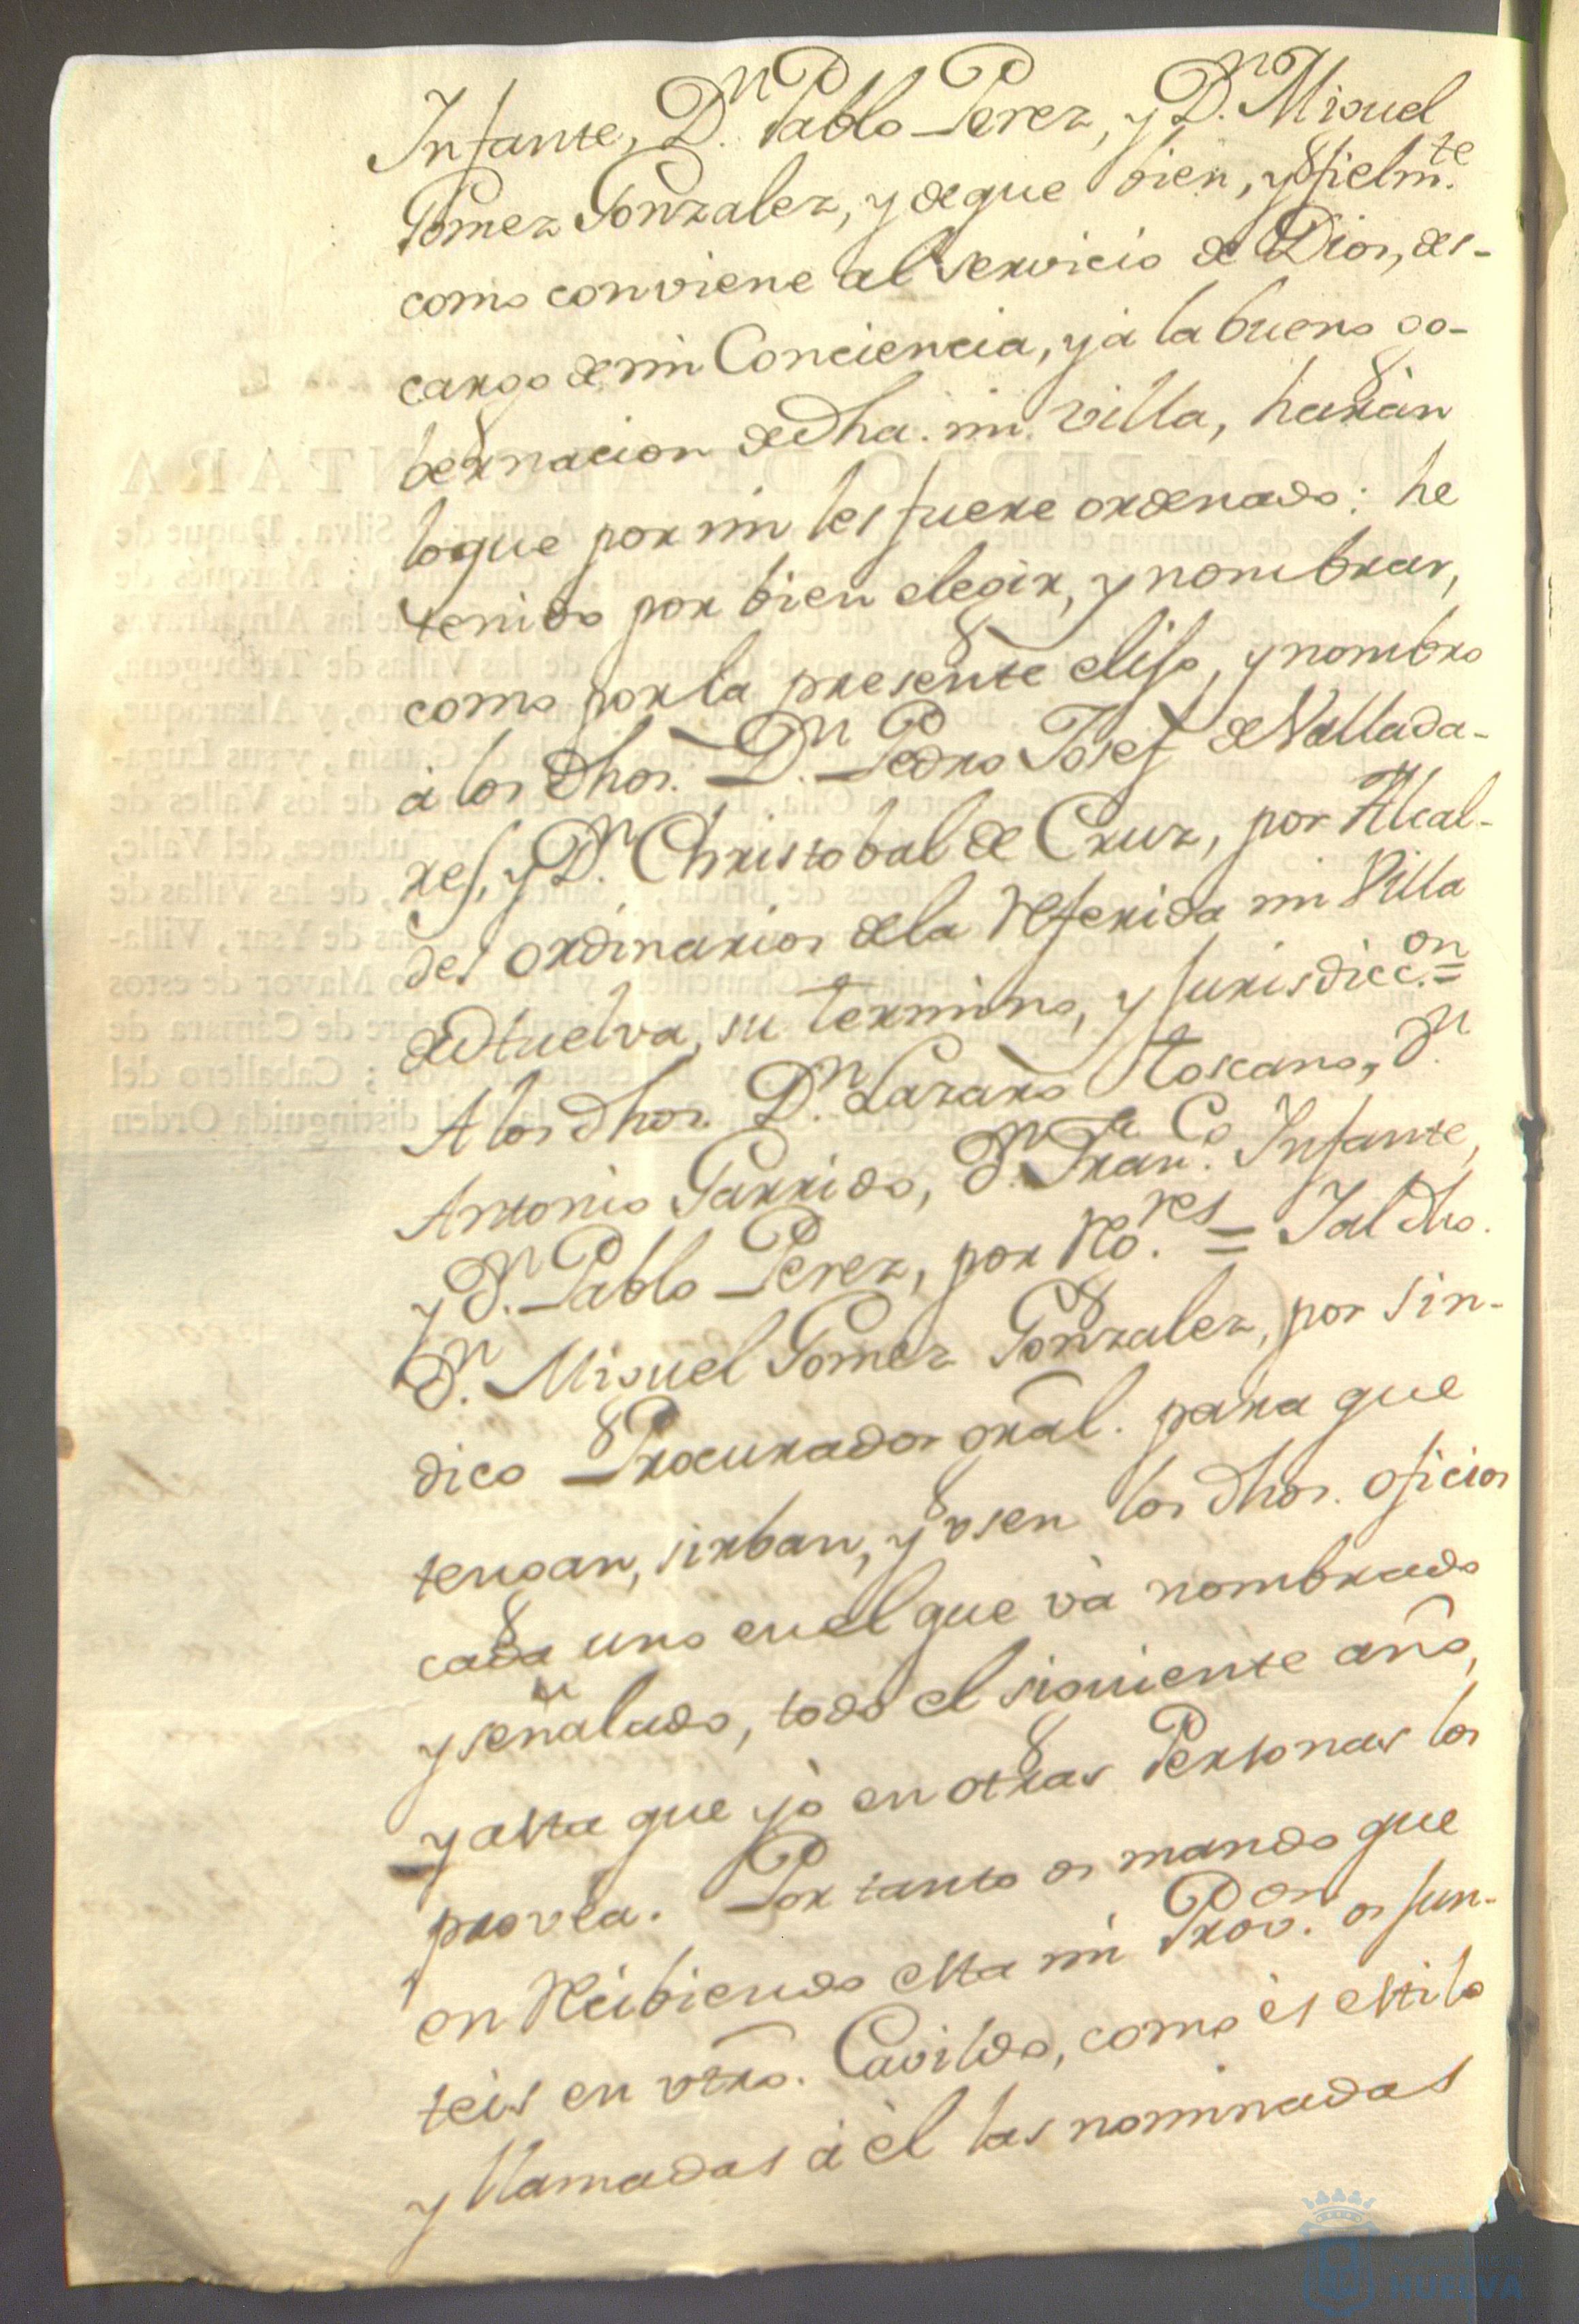 Infante, Dn. Pablo Perez, y Dn. Miguel
Gomez Gonzalez, y de que bien, y fielmte.
como conviene al servicio de Dios, des-
cargo de mi Conciencia, y à la buena go-
bernacion de dha. mi Villa, haràn
loque por mi les fuere ordenado: he
tenido por bien elegir, y nombrar,
como por la presente elijo, y nombro
à los dhos. Dn. Pedro Josef de Vallada-
res, y Dn. Christobal de Cruz, por Alcal-
des ordinarios dela Referida mi Villa
de Huelva, su termino, y jurisdiccon. =
A los dhos. Dn. Lazaro Toscano, Dn.
Antonio Garrido, Dn. Franco. Infante,
y Dn. Pablo Perez, por Rores. = Y al dho.
Dn. Miguel Gomez Gonzalez, por Sin-
dico Procurador gral. para que
tengan, sirban, y vsen los dhos. oficios
cada uno en el que và nombrado
y señalado, todo el siguiente año,
y asta que yò en otras Personas los
provea. Por tanto os mando que
en Recibiendo esta mi Provon. os jun-
teis en vtro. Cavildo, como ès estilo
y llamadas à èl las nominadas
HUELVA